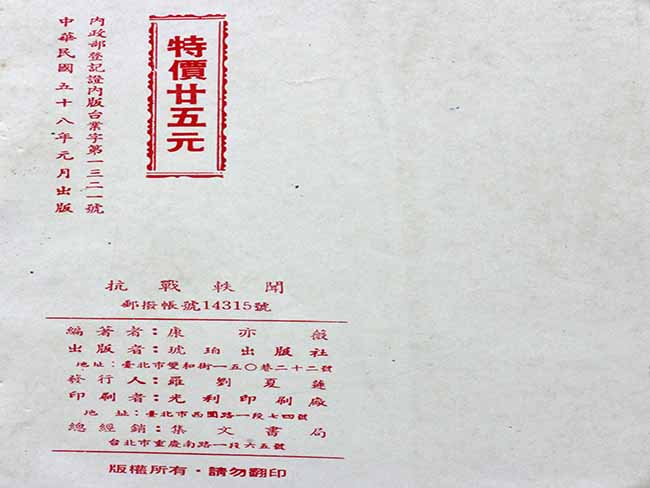 特價廿五元
內政部登記證內版台業字第一三二一號
中華民國五十八年元月出版
抗戰軼聞
郵撥帳號14315號
編著者：康亦薇
出版者：琥珀出版社
地址：臺北市雙和街一五〇巷二十二號
發行人：羅劉夏蓮
印刷者：光利印刷廠
地址：臺北市西園路一段七四號
總經銷：集文書局
台北市重慶南路一段六五號
版權所有・請勿翻印